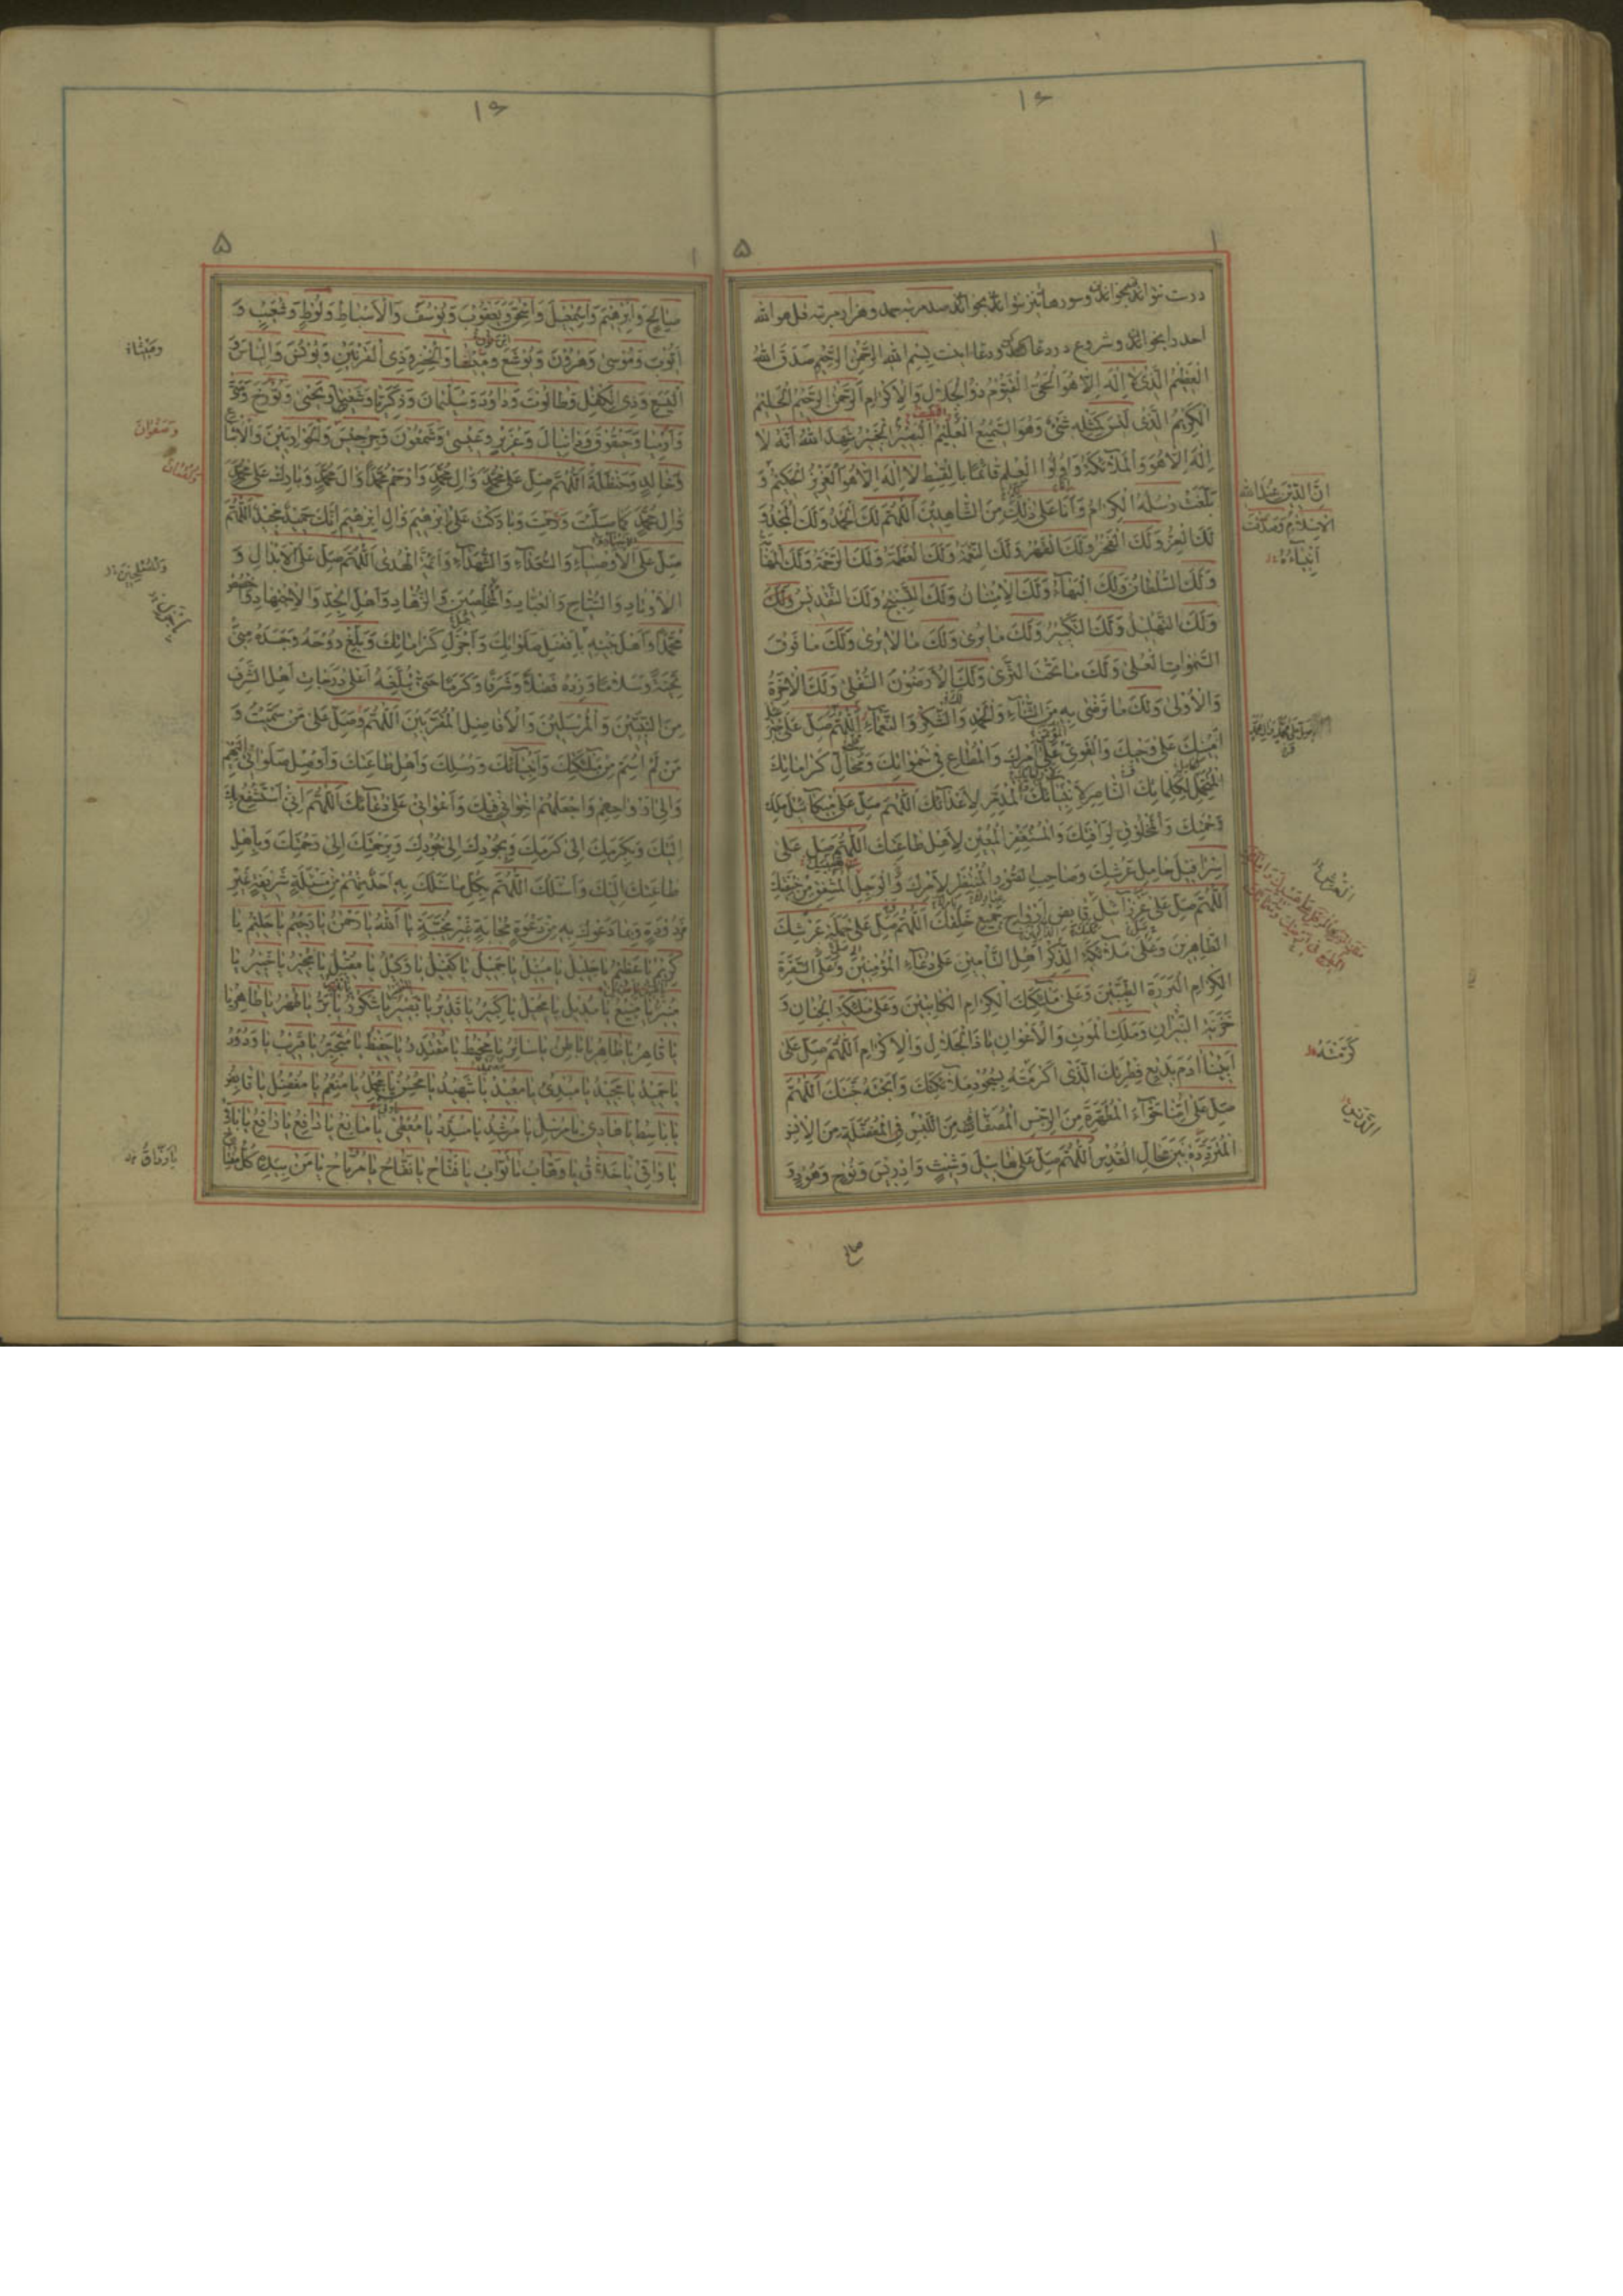 ۱۶
۱
۵
درست نتواند بخواند و سورها نیز نتواند بخواند صد مرتبه حمد و هزار مرتبه قل هو الله
احد را بخواند و شروع در دعا کند و دعا اینست بِسْمِ اللهِ الرَّحْمٰنِ الرَّحیمِ صَدَقَ اللهُ
الْعَظیمُ الَّذی لا اِلٰهَ اِلّا هُوَ الْحَیُّ الْقَیُّومُ ذُو الْجَلالِ وَالْاِکْرامِ الرَّحْمٰنُ الرَّحیمُ الْحَلیمُ
الْکَریمُ الَّذی لَیْسَ کَمِثْلِهِ شَیْءٌ وَهُوَ السَّمیعُ الْعَلیمُ الْبَصیرُ الْخَبیرُ شَهِدَ اللهُ اَنَّهُ لا
اِلٰهَ اِلّا هُوَ وَالْمَلآئِکَةُ وَاُولُوا الْعِلْمِ قآئِمًا بِالْقِسْطِ لا اِلٰهَ اِلّا هُوَ الْعَزیزُ الْحَکیمُ وَ
بَلَّغَتْ رُسُلُهُ الْکِرامُ وَاَنَا عَلٰی ذٰلِکَ مِنَ الشّاهِدینَ اَللّٰهُمَّ لَکَ الْحَمْدُ وَلَکَ الْمَجْدُ وَ
لَکَ الْعِزُّ وَلَکَ الْفَخْرُ وَلَکَ الْقَهْرُ وَلَکَ النِّعْمَةُ وَلَکَ الْعَظَمَةُ وَلَکَ الرَّحْمَةُ وَلَکَ الْمَهابَةُ
وَلَکَ السُّلْطانُ وَلَکَ الْبَهآءُ وَلَکَ الْاِمْتِنانُ وَلَکَ التَّسْبیحُ وَلَکَ التَّقْدیسُ وَلَکَ
وَلَکَ التَّهْلیلُ وَلَکَ التَّکْبیرُ وَلَکَ ما یُرٰی وَلَکَ ما لا یُرٰی وَلَکَ ما فَوْقَ
السَّمٰواتِ الْعُلٰی وَلَکَ ما تَحْتَ الثَّرٰی وَلَکَ الْاَرَضُونَ السُّفْلٰی وَلَکَ الْاٰخِرَةُ
وَالْاُولٰی وَلَکَ ما تَرْضٰی بِهِ مِنَ الثَّنآءِ وَالْحَمْدِ وَالشُّکْرِ وَالنَّعْمآءِ اَللّٰهُمَّ صَلِّ عَلٰی جَبْرَئیلَ
اَمینِکَ عَلٰی وَحْیِکَ وَالْقَوِیِّ عَلٰی اَمْرِکَ وَالْمُطاعِ فی سَمٰواتِکَ وَمَحالِّ کَراماتِکَ
الْمُتَحَمِّلِ لِکَلِماتِکَ النّاصِرِ لِاَنْبِیآئِکَ الْمُدَمِّرِ لِاَعْدآئِکَ اَللّٰهُمَّ صَلِّ عَلٰی میکآئیلَ مَلَکِ
رَحْمَتِکَ وَالْمَخْلُوقِ لِرَاْفَتِکَ وَالْمُسْتَغْفِرِ الْمُعینِ لِاَهْلِ طاعَتِکَ اَللّٰهُمَّ صَلِّ عَلٰی
اِسْرافیلَ حامِلِ عَرْشِکَ وَصاحِبِ الصُّورِ الْمُنْتَظِرِ لِاَمْرِکَ وَالْوَجِلِ الْمُشْفِقِ مِنْ خیفَتِکَ
اَللّٰهُمَّ صَلِّ عَلٰی عِزْرآئیلَ قابِضِ اَرْواحِ جَمیعِ خَلْقِکَ اَللّٰهُمَّ صَلِّ عَلٰی حَمَلَةِ عَرْشِکَ
الطّاهِرینَ وَعَلٰی مَلآئِکَةِ الذِّکْرِ اَهْلِ التَّاْمینِ عَلٰی دُعآءِ الْمُؤْمِنینَ وَعَلَی السَّفَرَةِ
الْکِرامِ الْبَرَرَةِ الطَّیِّبینَ وَعَلٰی مَلٰٓئِکَتِکَ الْکِرامِ الْکاتِبینَ وَعَلٰی مَلٰٓئِکَةِ الْجِنانِ وَ
خَزَنَةِ النّیرانِ وَمَلَکِ الْمَوْتِ وَالْاَعْوانِ یا ذَا الْجَلالِ وَالْاِکْرامِ اَللّٰهُمَّ صَلِّ عَلٰی
اَبینا اٰدَمَ بَدیعِ فِطْرَتِکَ الَّذی اَکْرَمْتَهُ بِسُجُودِ مَلآئِکَتِکَ وَاَبَحْتَهُ جَنَّتَکَ اَللّٰهُمَّ
صَلِّ عَلٰی اُمِّنا حَوّآءَ الْمُطَهَّرَةِ مِنَ الرِّجْسِ الْمُصَفّاةِ مِنَ الدَّنَسِ الْمُفَضَّلَةِ مِنَ الْاِنْسِ
الْمُتَرَدِّدَةِ بَیْنَ مَحالِّ الْقُدْسِ اَللّٰهُمَّ صَلِّ عَلٰی هابیلَ وَشیثٍ وَاِدْریسَ وَنُوحٍ وَهُودٍ وَ
اِنَّ الدّینَ عِنْدَ اللهِ
الْاِسْلامُ وَصَدَقَتْ
اَنْبِیآؤُهُ
الْعَرْشِ
کَرَّمْتَهُ
الَّذینَ
صالح
۱۶
۱
۵
صالِحٍ وَاِبْرٰهیمَ وَاِسْمٰعیلَ وَاِسْحٰقَ وَیَعْقُوبَ وَیُوسُفَ وَالْاَسْباطِ وَلُوطٍ وَشُعَیْبٍ وَ
اَیُّوبَ وَمُوسٰی وَهٰرُونَ وَیُوشَعَ وَمیشا وَالْخِضْرِ وَذِی الْقَرْنَیْنِ وَیُونُسَ وَاِلْیاسَ وَ
الْیَسَعِ وَذِی الْکِفْلِ وَطالُوتَ وَداوُدَ وَسُلَیْمانَ وَزَکَرِیّا وَشَعْیا وَیَحْیٰی وَتُورَخَ وَمَتّٰی
وَاِرْمِیا وَحَیْقُوقَ وَدانِیالَ وَعُزَیْرٍ وَعیسٰی وَشَمْعُونَ وَجِرْجیسَ وَالْحَوارِیّینَ وَالْاَتْباعِ
وَخالِدٍ وَحَنْظَلَةَ اَللّٰهُمَّ صَلِّ عَلٰی مُحَمَّدٍ وَاٰلِ مُحَمَّدٍ وَارْحَمْ مُحَمَّدًا وَاٰلَ مُحَمَّدٍ وَبارِکْ عَلٰی مُحَمَّدٍ
وَاٰلِ مُحَمَّدٍ کَما صَلَّیْتَ وَرَحِمْتَ وَبارَکْتَ عَلٰی اِبْرٰهیمَ وَاٰلِ اِبْرٰهیمَ اِنَّکَ حَمیدٌ مَجیدٌ اَللّٰهُمَّ
صَلِّ عَلَی الْاَوْصِیآءِ وَالسُّعَدآءِ وَالشُّهَدآءِ وَاَئِمَّةِ الْهُدٰی اَللّٰهُمَّ صَلِّ عَلَی الْاَبْدالِ وَ
الْاَوْتادِ وَالسُّیّاحِ وَالْعُبّادِ وَالْمُخْلِصینَ وَالزُّهّادِ وَاَهْلِ الْجِدِّ وَالْاِجْتِهادِ وَاخْصُصْ
مُحَمَّدًا وَاَهْلَ بَیْتِهِ بِاَفْضَلِ صَلَواتِکَ وَاَجْزَلِ کَراماتِکَ وَبَلِّغْ رُوحَهُ وَجَسَدَهُ مِنّی
تَحِیَّةً وَسَلامًا وَزِدْهُ فَضْلًا وَشَرَفًا وَکَرَمًا حَتّٰی تُبَلِّغَهُ اَعْلٰی دَرَجاتِ اَهْلِ الشَّرَفِ
مِنَ النَّبِیّینَ وَالْمُرْسَلینَ وَالْاَفاضِلِ الْمُقَرَّبینَ اَللّٰهُمَّ وَصَلِّ عَلٰی مَنْ سَمَّیْتُ وَ
مَنْ لَمْ اُسَمِّ مِنْ مَلٰٓئِکَتِکَ وَاَنْبِیآئِکَ وَرُسُلِکَ وَاَهْلِ طاعَتِکَ وَاَوْصِلْ صَلَواتی اِلَیْهِمْ
وَاِلٰی اَرْواحِهِمْ وَاجْعَلْهُمْ اِخْوانی فیکَ وَاَعْوانی عَلٰی دُعآئِکَ اَللّٰهُمَّ اِنّی اَسْتَشْفِعُ بِکَ
اِلَیْکَ وَبِکَرَمِکَ اِلٰی کَرَمِکَ وَبِجُودِکَ اِلٰی جُودِکَ وَبِرَحْمَتِکَ اِلٰی رَحْمَتِکَ وَبِاَهْلِ
طاعَتِکَ اِلَیْکَ وَاَسْئَلُکَ اَللّٰهُمَّ بِکُلِّ ما سَئَلَکَ بِهِ اَحَدٌ مِنْهُمْ مِنْ مَسْئَلَةٍ شَریفَةٍ غَیْرِ
مَرْدُودَةٍ وَبِما دَعَوْکَ بِهِ مِنْ دَعْوَةٍ مُجابَةٍ غَیْرِ مُخَیَّبَةٍ یا اَللهُ یا رَحْمٰنُ یا رَحیمُ یا حَلیمُ یا
کَریمُ یا عَظیمُ یا جَلیلُ یا مُنیلُ یا جَمیلُ یا کَفیلُ یا وَکیلُ یا مُقیلُ یا مُجیرُ یا خَبیرُ یا
مُنیرُ یا مَنیعُ یا مُدیلُ یا مُحیلُ یا کَبیرُ یا قَدیرُ یا بَصیرُ یا شَکُورُ یا بَرُّ یا طُهْرُ یا طاهِرُ یا
یا قاهِرُ یا ظاهِرُ یا باطِنُ یا ساتِرُ یا مُحیطُ یا مُقْتَدِرُ یا حَفیظُ یا مُتَجَبِّرُ یا قَریبُ یا وَدُودُ
یا حَمیدُ یا مَجیدُ یا مُبْدِئُ یا مُعیدُ یا شَهیدُ یا مُحْسِنُ یا مُجْمِلُ یا مُنْعِمُ یا مُفْضِلُ یا قابِضُ
یا باسِطُ یا هادی یا مُرْسِلُ یا مُرْشِدُ یا مُسَدِّدُ یا مُعْطی یا مانِعُ یا دافِعُ یا رافِعُ یا باقی
یا واقی یا خَلّاقُ یا وَهّابُ یا تَوّابُ یا فَتّاحُ یا نَفّاحُ یا مُرْتاحُ یا مَنْ بِیَدِهِ کُلُّ مِفْتاحٍ
وَمیشاهُ
وَصَفْوانَ
وَلُقْمانَ
یا رَزّاقُ